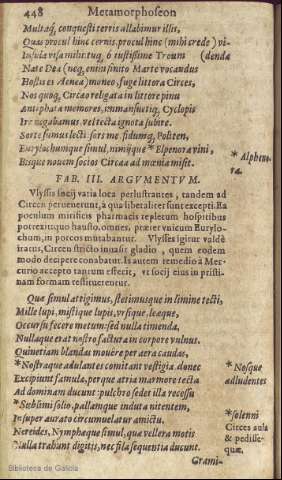 448 Metamorphoseon
Multaq́; conquesti terris allabimur illis,
Quas procul hinc cernis. procul hinc (mihi crede) vi-
Insula visa mihi. tuq́; ô iustissime Troum (denda
Nate Dea (neq́; enim finito Marte vocandus
Hostis es Aenea) moneo, fuge littora Circes,
Nos quoq́; Circæo religata in littore pinu
Antiphatæ memores, immansuetiq́; Cyclopis
Ire negabamus. vel tecta ignota subire.
Sorte sumus lecti: sors me fidumq́; Politen,
Eurylochumque simul, nimijque * Elpenora vini,
Bisque nouem socios Circæa ad mœnia misit.
* Alpheno-
ra.
FAB. III. ARGVMENTVM.
Vlyssis socij varia loca perlustrantes, tandem ad
Circen peruenerunt, à qua liberaliter sunt excepti. Ea
poculum mirificis pharmacis repletum hospitibus
potrexit: quo hausto, omnes, præter vnicum Eurylo-
chum, in porcos mutabantur. Vlysses igitur valde
iratus, Circen stricto inuasit gladio, quem eodem
modo decipere conabatur. Is autem remedio à Mer-
curio accepto tantum effecit, vt socij eius in pristi-
nam formam restituerentur.
Quæ simul attigimus, stetimusque in limine tecti,
Mille lupi, mistique lupis, vrsique, leæque,
Occursu fecere metum: sed nulla timenda,
Nullaque erat nostro factura in corpore vulnus.
Quinetiam blandas mouere per aera caudas,
* Nostraque adulantes comitant vestigia. donec
Excipiunt famulæ, perque atria marmore tecta
Ad dominam ducunt: pulchro sedet illa recessu
* Sublimi solio, pallamque induta nitentem,
Insuper aurato circumuelatur amictu.
Nereides, Nymphæque simul, quæ vellera motis
Nulla trahunt digitis, nec fila sequentia ducunt.
* Nosque
adludentes
* solenni
Circes aula
& pedisse-
quæ.
Grami-
Biblioteca de Galicia